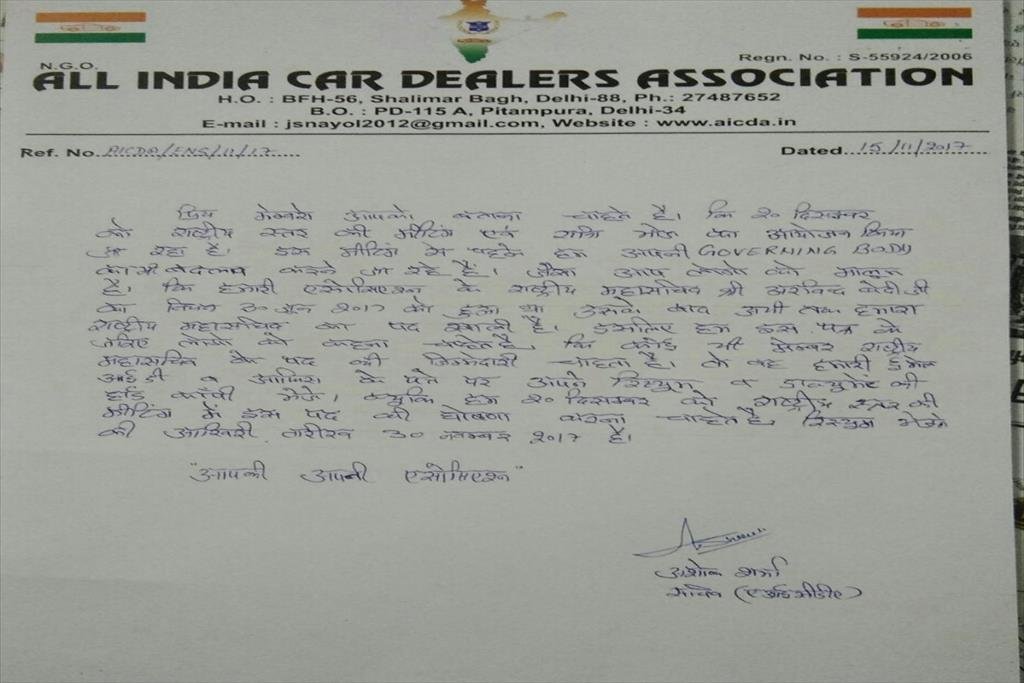 N.G.O.
Regn. No. : S-55924/2006
ALL INDIA CAR DEALERS ASSOCIATION
H.O. : BFH-56, Shalimar Bagh, Delhi-88, Ph.: 27487652
B.O. : PD-115 A, Pitampura, Delhi-34
E-mail : jsnayol2012@gmail.com, Website : www.aicda.in
Ref. No. AICDA/ENG/11/17 Dated 15/11/2017
प्रिय मेम्बरो आपको बताना चाहते है। कि २० दिसम्बर
को राष्ट्रीय स्तर की मीटिंग एवं रात्रि भोज का आयोजन किया
जा रहा है। इस मीटिंग से पहले हम अपनी GOVERNING BODY
का भी बदलाव करने जा रहे हैं। जैसा आप लोगो को मालूम
है। कि हमारी एसोसिएशन के राष्ट्रीय महासचिव श्री अरविन्द
का निधन 30 जून २०१७ को हुआ था उसके बाद अभी तक हमारा
राष्ट्रीय महासचिव का पद खाली है। इसलिए हम इस पत्र के
जरिए लोगो को कहना चाहते है। कि कोई भी मेम्बर राष्ट्रीय
महासचिव के पद की जिम्मेदारी चाहता है। के वह हमारी ईमेल
आई डी व ऑफिस के पते पर अपने रिस्यूम व डाक्यूमेंट की
हार्ड कॉपी भेजे। क्यूकि हम २० दिसम्बर को राष्ट्रीय स्तर की
मीटिंग में इस पद की घोषणा करना चाहते है, रिस्यूम भेजने
की आखिरी तारीख 30 नवम्बर २०१७ है।
"आपकी अपनी एसोसिएशन"
अशोक शर्मा
सचिव (एआईसीडीए)